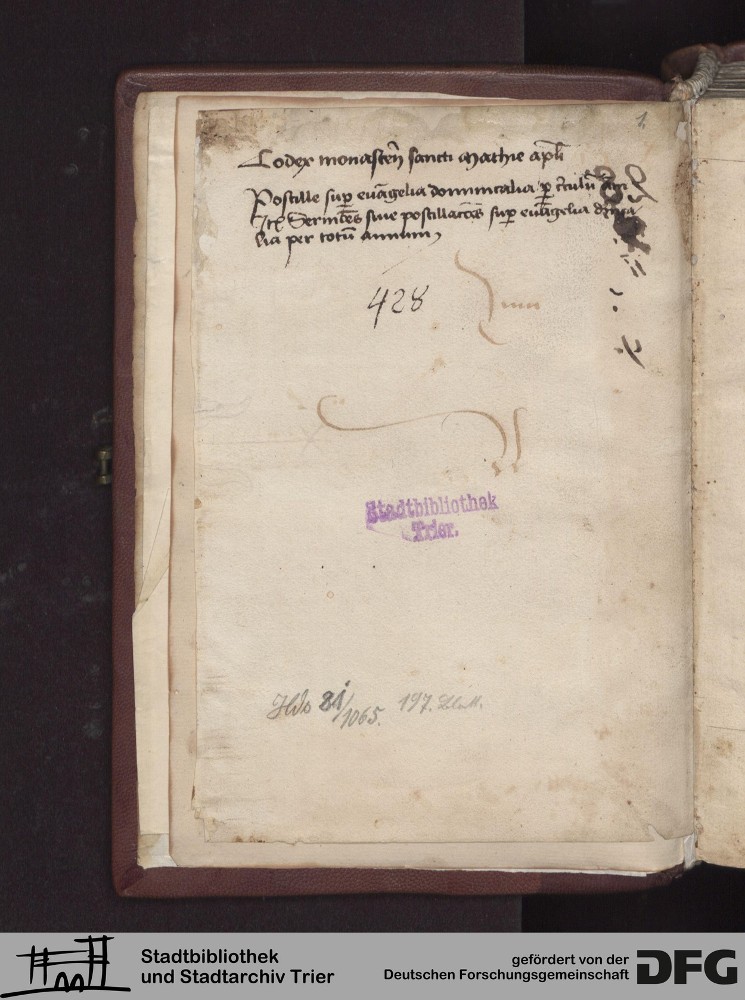 1.
Codex monasterij sancti Mathie apli
Postille sup euangelia dominicalia p circulu Ani
Ite Sermões siue postillacões sup euangelia dnica
lia per totu annum
428
Stadtbibliothek
Trier.
Hds 81/1065. 197. Blatt.
Stadtbibliothek
und Stadtarchiv Trier
gefördert von der
Deutschen Forschungsgemeinschaft
DFG